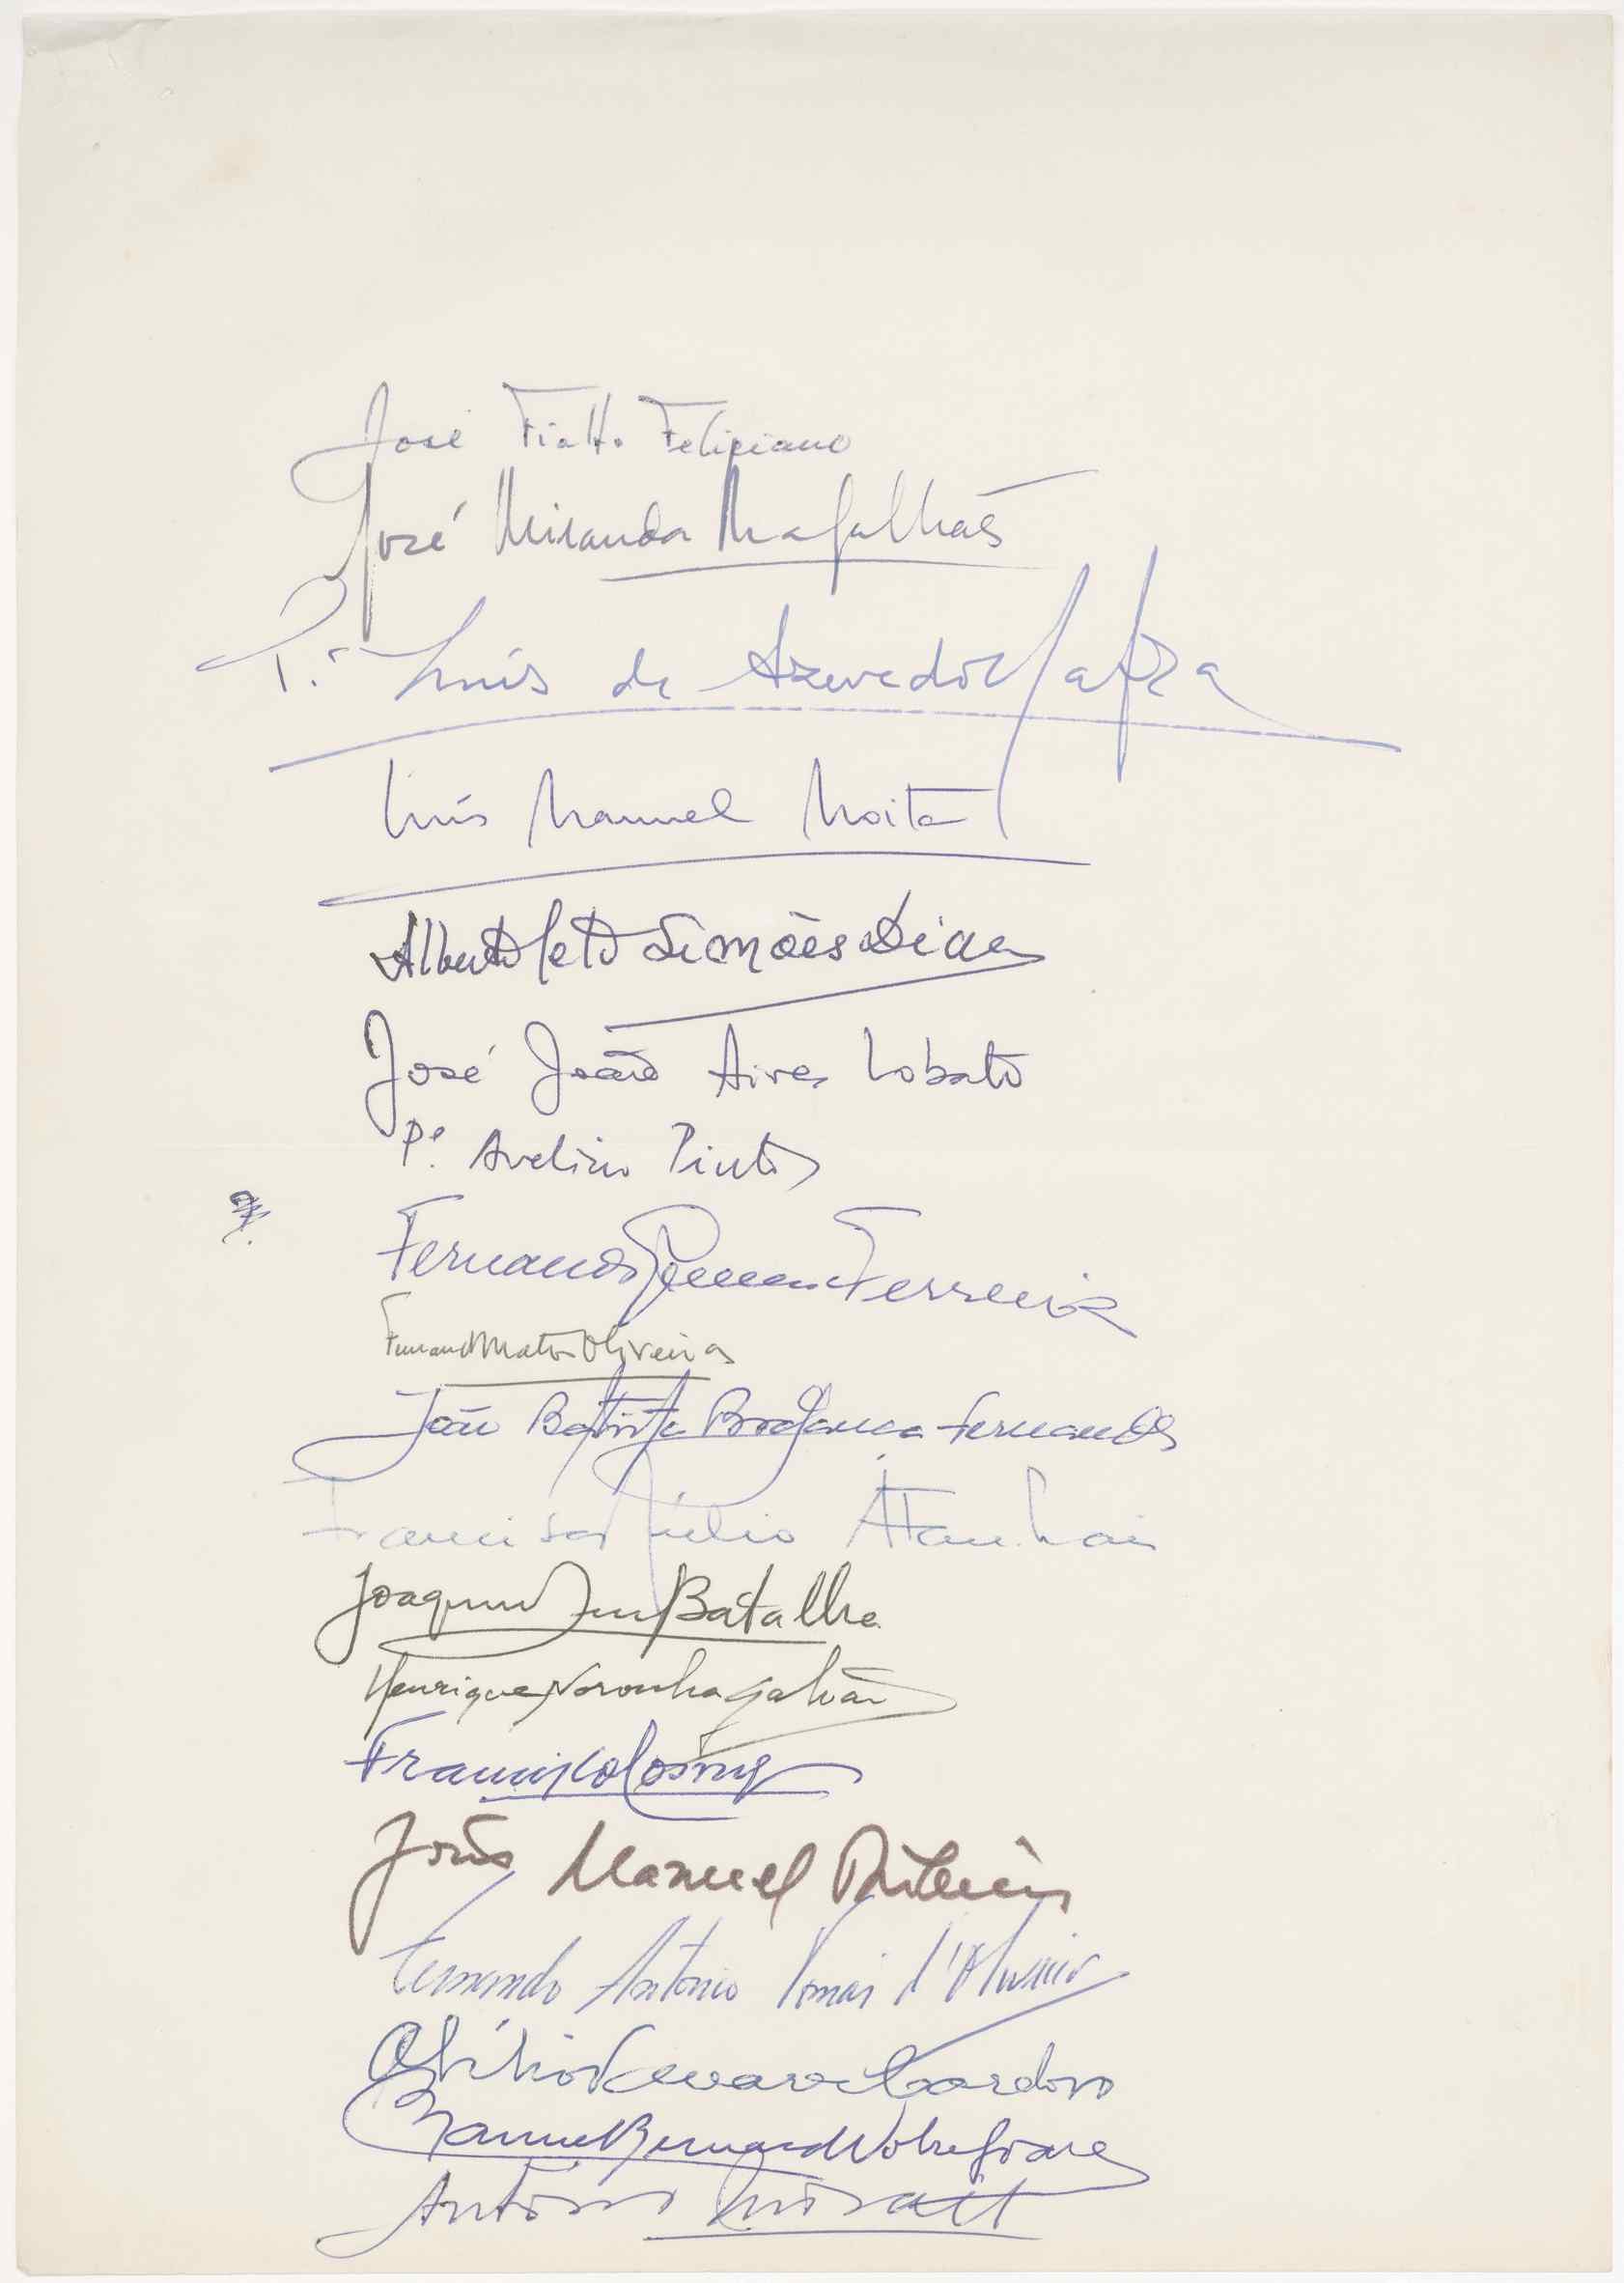 José Fialho Feliciano
José Miranda Magalhães
P.e Luís de Azevedo Mafra
Luís Manuel Moita
Alberto Neto Simões Dias
José João Aires Lobato
Pe. Avelino Pinto
Fernando Ferreira
Fernando Matos Oliveira
João Batista Bragança Fernandes
Francisco Júlio
Joaquim Batalha
Henrique Noronha Galvão
Francisco Cosme
Manuel
Fernando António d'Oliveira
Abílio Tavares Cardoso
Manuel Bernardo
António